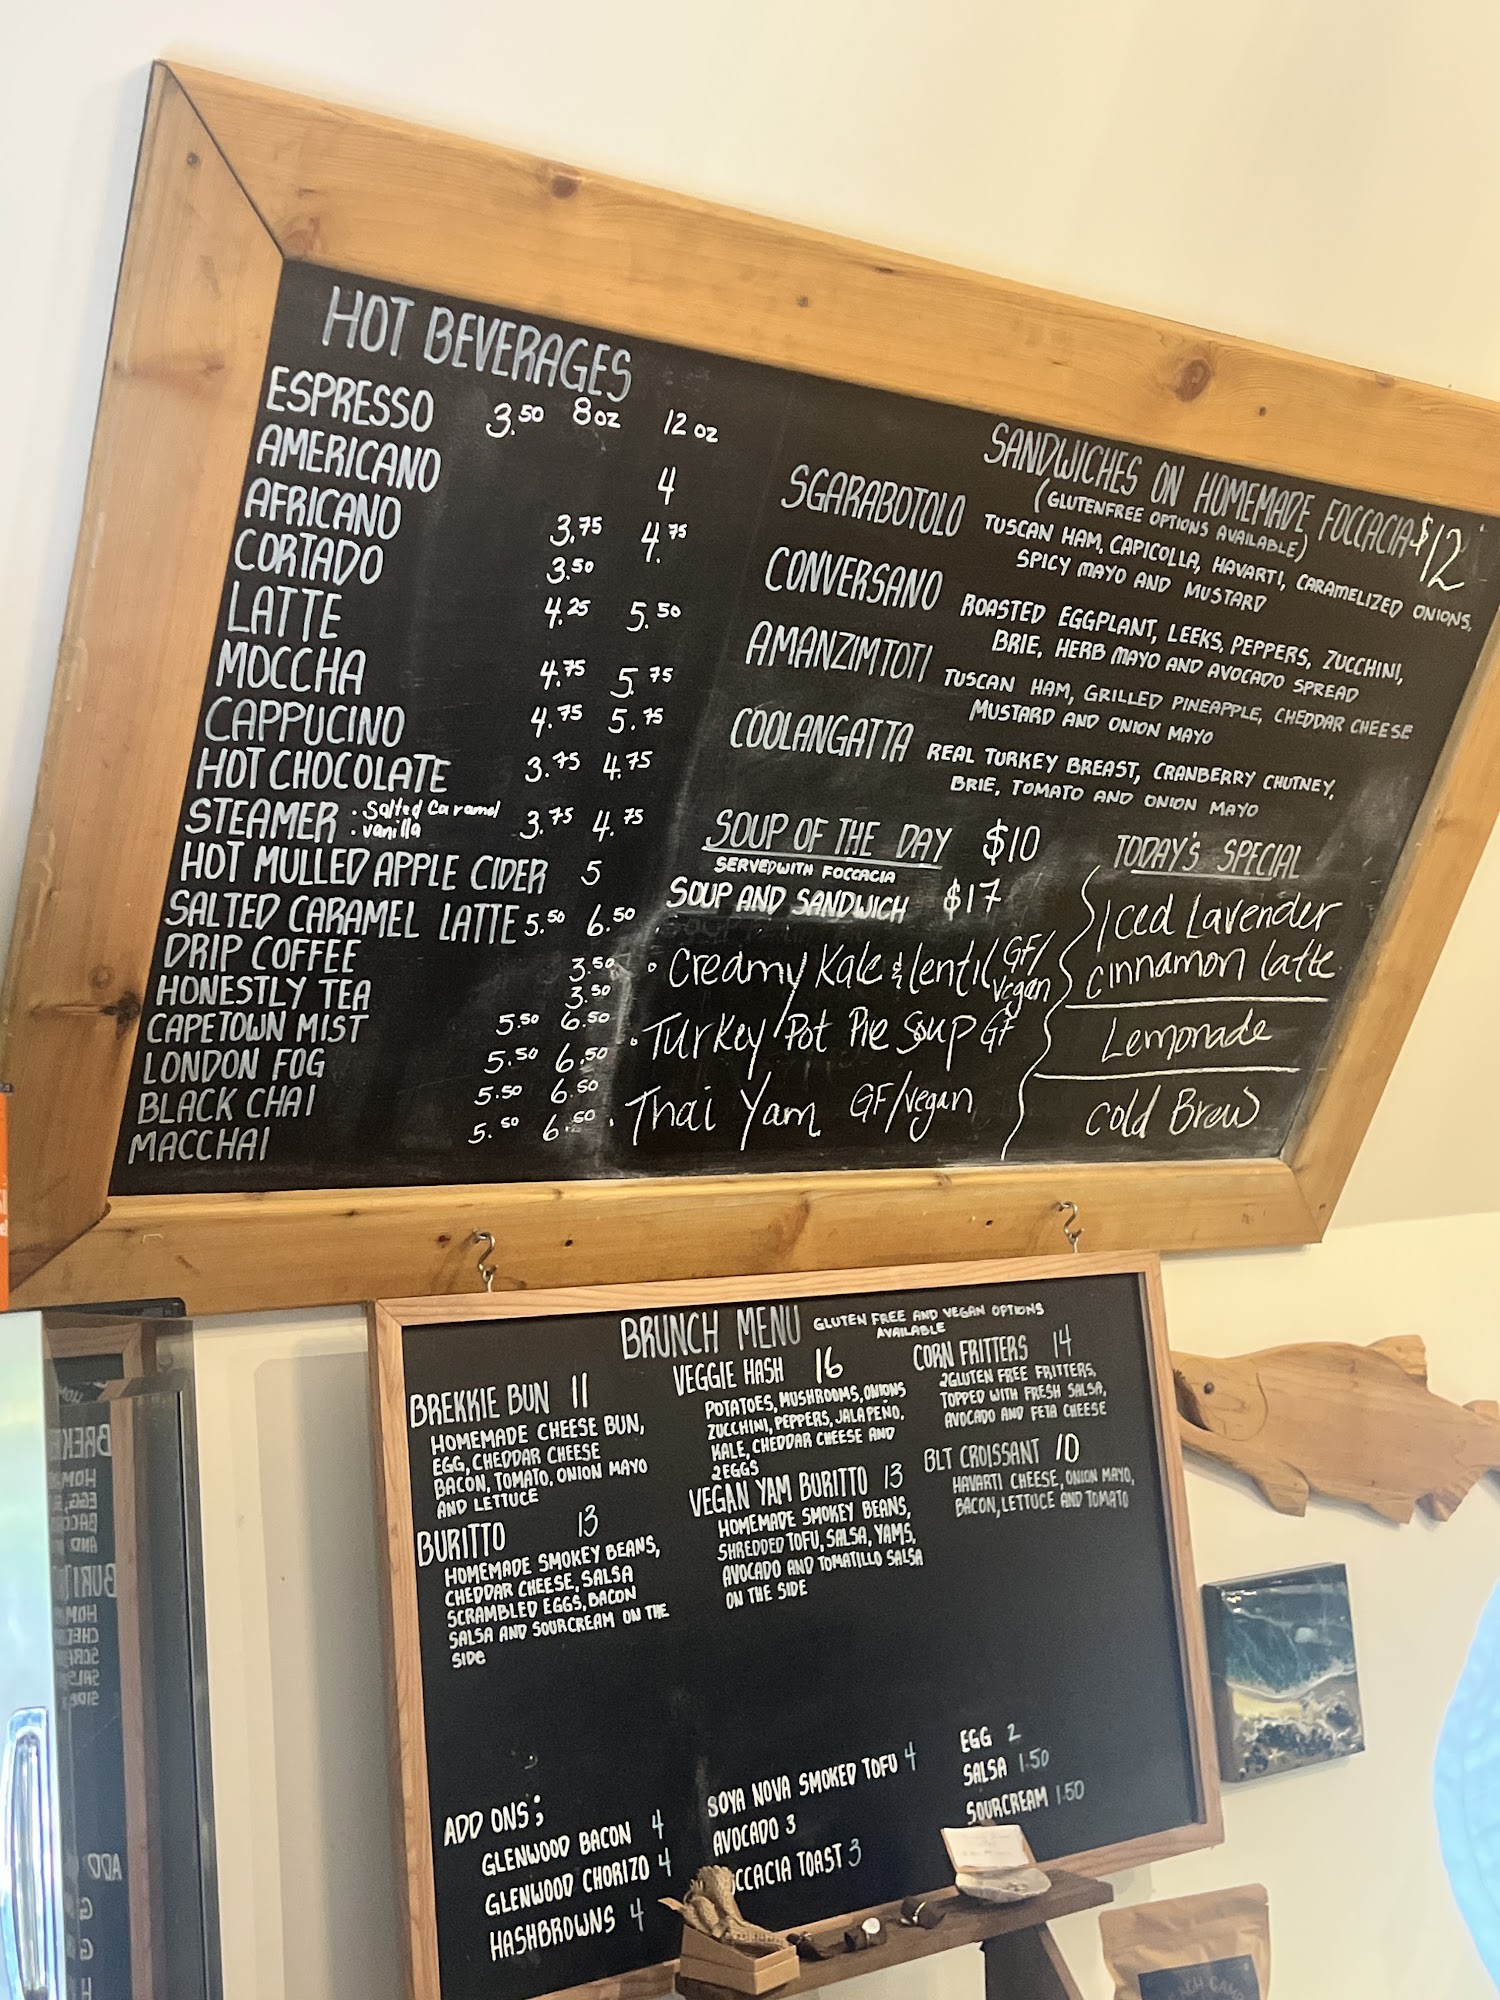 HOT BEVERAGES
ESPRESSO 3.50 8oz 12oz
AMERICANO 4
AFRICANO 3.75 4.75
CORTADO 3.50
LATTE 4.25 5.50
MOCCHA 4.75 5.75
CAPPUCINO 4.75 5.75
HOT CHOCOLATE 3.75 4.75
STEAMER · Salted Caramel 3.75 4.75
· vanilla
HOT MULLED APPLE CIDER 5
SALTED CARAMEL LATTE 5.50 6.50
DRIP COFFEE 3.50
HONESTLY TEA 3.50
CAPETOWN MIST 5.50 6.50
LONDON FOG 5.50 6.50
BLACK CHAI 5.50 6.50
MACCHAI 5.50 6.50
SANDWICHES ON HOMEMADE FOCCACIA $12
(GLUTENFREE OPTIONS AVAILABLE)
SGARABOTOLO TUSCAN HAM, CAPICOLLA, HAVARTI, CARAMELIZED ONIONS,
SPICY MAYO AND MUSTARD
CONVERSANO ROASTED EGGPLANT, LEEKS, PEPPERS, ZUCCHINI,
BRIE, HERB MAYO AND AVOCADO SPREAD
AMANZIMTOTI TUSCAN HAM, GRILLED PINEAPPLE, CHEDDAR CHEESE
MUSTARD AND ONION MAYO
COOLANGATTA REAL TURKEY BREAST, CRANBERRY CHUTNEY,
BRIE, TOMATO AND ONION MAYO
SOUP OF THE DAY $10
SERVED WITH FOCCACIA
SOUP AND SANDWICH $17
· Creamy Kale & Lentil GF/
vegan
· Turkey Pot Pie Soup GF
· Thai Yam GF/vegan
TODAY'S SPECIAL
Iced Lavender
cinnamon latte
Lemonade
Cold Brew
BRUNCH MENU GLUTEN FREE AND VEGAN OPTIONS
AVAILABLE
BREKKIE BUN 11
HOMEMADE CHEESE BUN,
EGG, CHEDDAR CHEESE
BACON, TOMATO, ONION MAYO
AND LETTUCE
BURITTO 13
HOMEMADE SMOKEY BEANS,
CHEDDAR CHEESE, SALSA
SCRAMBLED EGGS, BACON
SALSA AND SOURCREAM ON THE
SIDE
VEGGIE HASH 16
POTATOES, MUSHROOMS, ONIONS
ZUCCHINI, PEPPERS, JALAPEÑO,
KALE, CHEDDAR CHEESE AND
2EGGS
VEGAN YAM BURITTO 13
HOMEMADE SMOKEY BEANS,
SHREDDED TOFU, SALSA, YAMS,
AVOCADO AND TOMATILLO SALSA
ON THE SIDE
CORN FRITTERS 14
2GLUTEN FREE FRITTERS,
TOPPED WITH FRESH SALSA,
AVOCADO AND FETA CHEESE
BLT CROISSANT 10
HAVARTI CHEESE, ONION MAYO,
BACON, LETTUCE AND TOMATO
ADD ONS;
GLENWOOD BACON 4
GLENWOOD CHORIZO 4
HASHBROWNS 4
SOYA NOVA SMOKED TOFU 4
AVOCADO 3
OCCACIA TOAST 3
EGG 2
SALSA 1.50
SOURCREAM 1.50